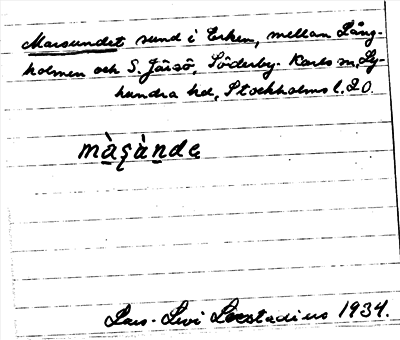 Marsundet sund i Erken, mellan Lång-
holmen och S. Järsö, Söderby-Karls sn, Ly-
hundra hd, Stockholms l. 20.
màʂàndə
Lars-Levi Læstadius 1934.